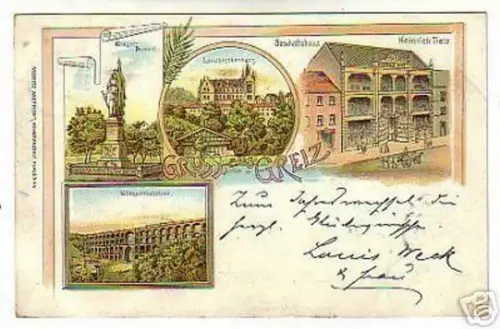 Krieger-
Denkmal.
Geschäftshaus
Heinrich Tietz
GRUSS AUS
GREIZ
Zum Jahreswechsel die
herzl. Glückwünsche
Louis Weck
& Frau
ebay